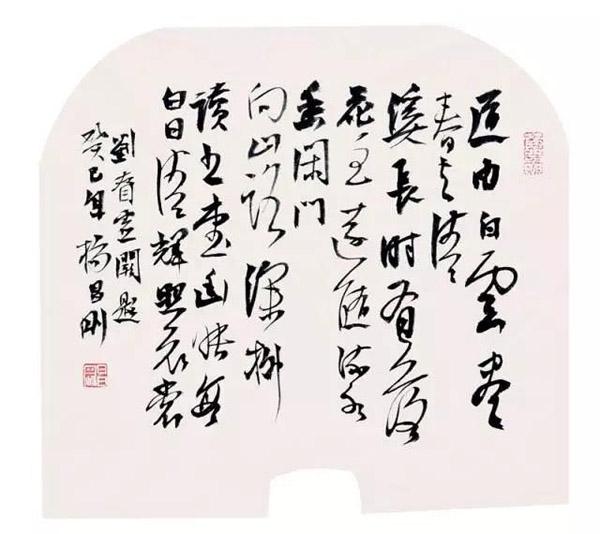 道由白雲盡
春與清
溪長時有落
花至遠随流水
香閑門
向山路深柳
讀書堂幽映每
白日清輝照衣裳
劉眘虛闕題
癸巳年楊昌刚